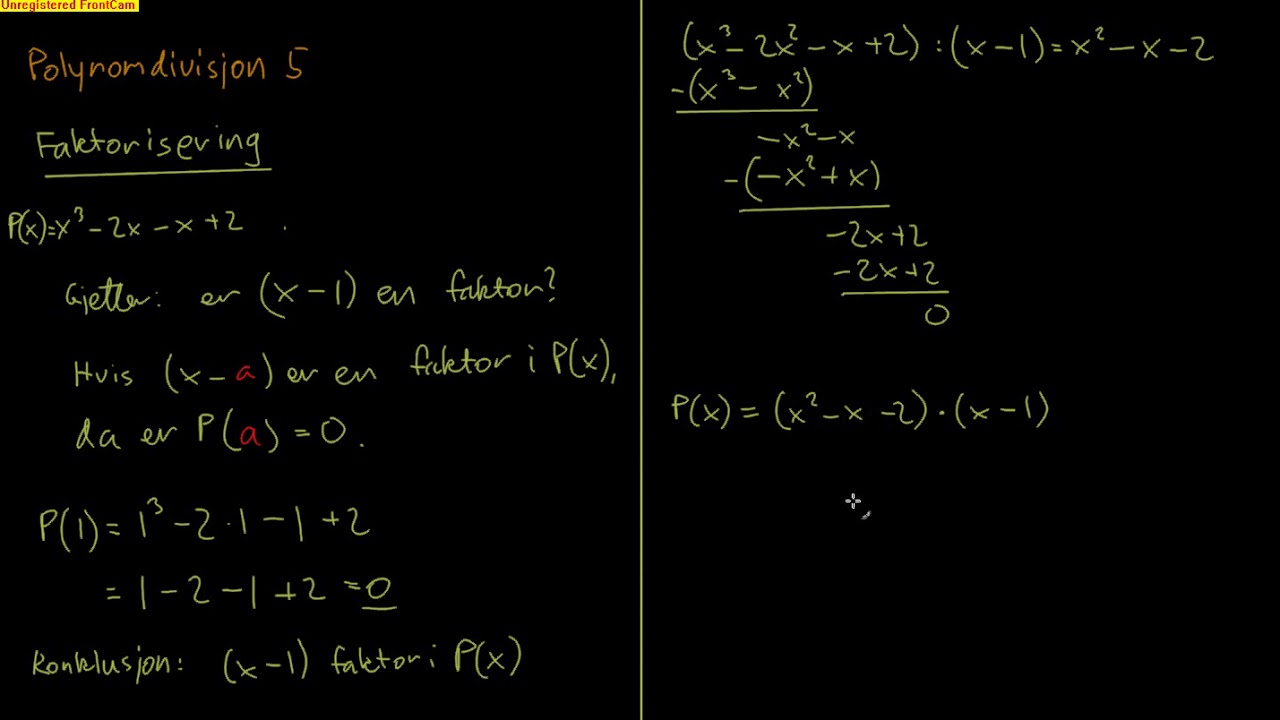 Unregistered FrontCam
Polynomdivisjon 5
Faktorisering
P(x)=x³-2x-x+2 .
Gjetter: er (x-1) en faktor?
Hvis (x-a) er en faktor i P(x),
da er P(a)=0.
P(1)=1³-2·1-1+2
=1-2-1+2=0
Konklusjon: (x-1) faktor i P(x)
(x³-2x²-x+2):(x-1)=x²-x-2
-(x³-x²)
-x²-x
-(-x²+x)
-2x+2
-2x+2
0
P(x)=(x²-x-2)·(x-1)